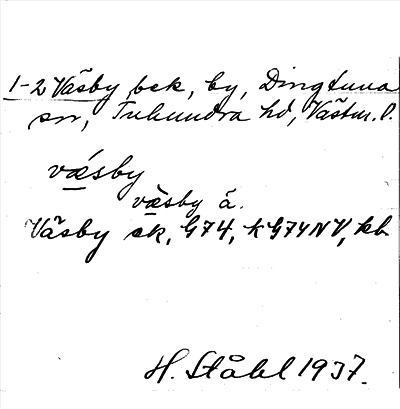 1-2 Väsby, bek, by, Dingtuna
sn, Tuhundra hd, Västm. l.
vǽ̲sby
væ̲̀sby å.
Väsby ek, G74, kG74NV, kb
H. Ståhl 1937.